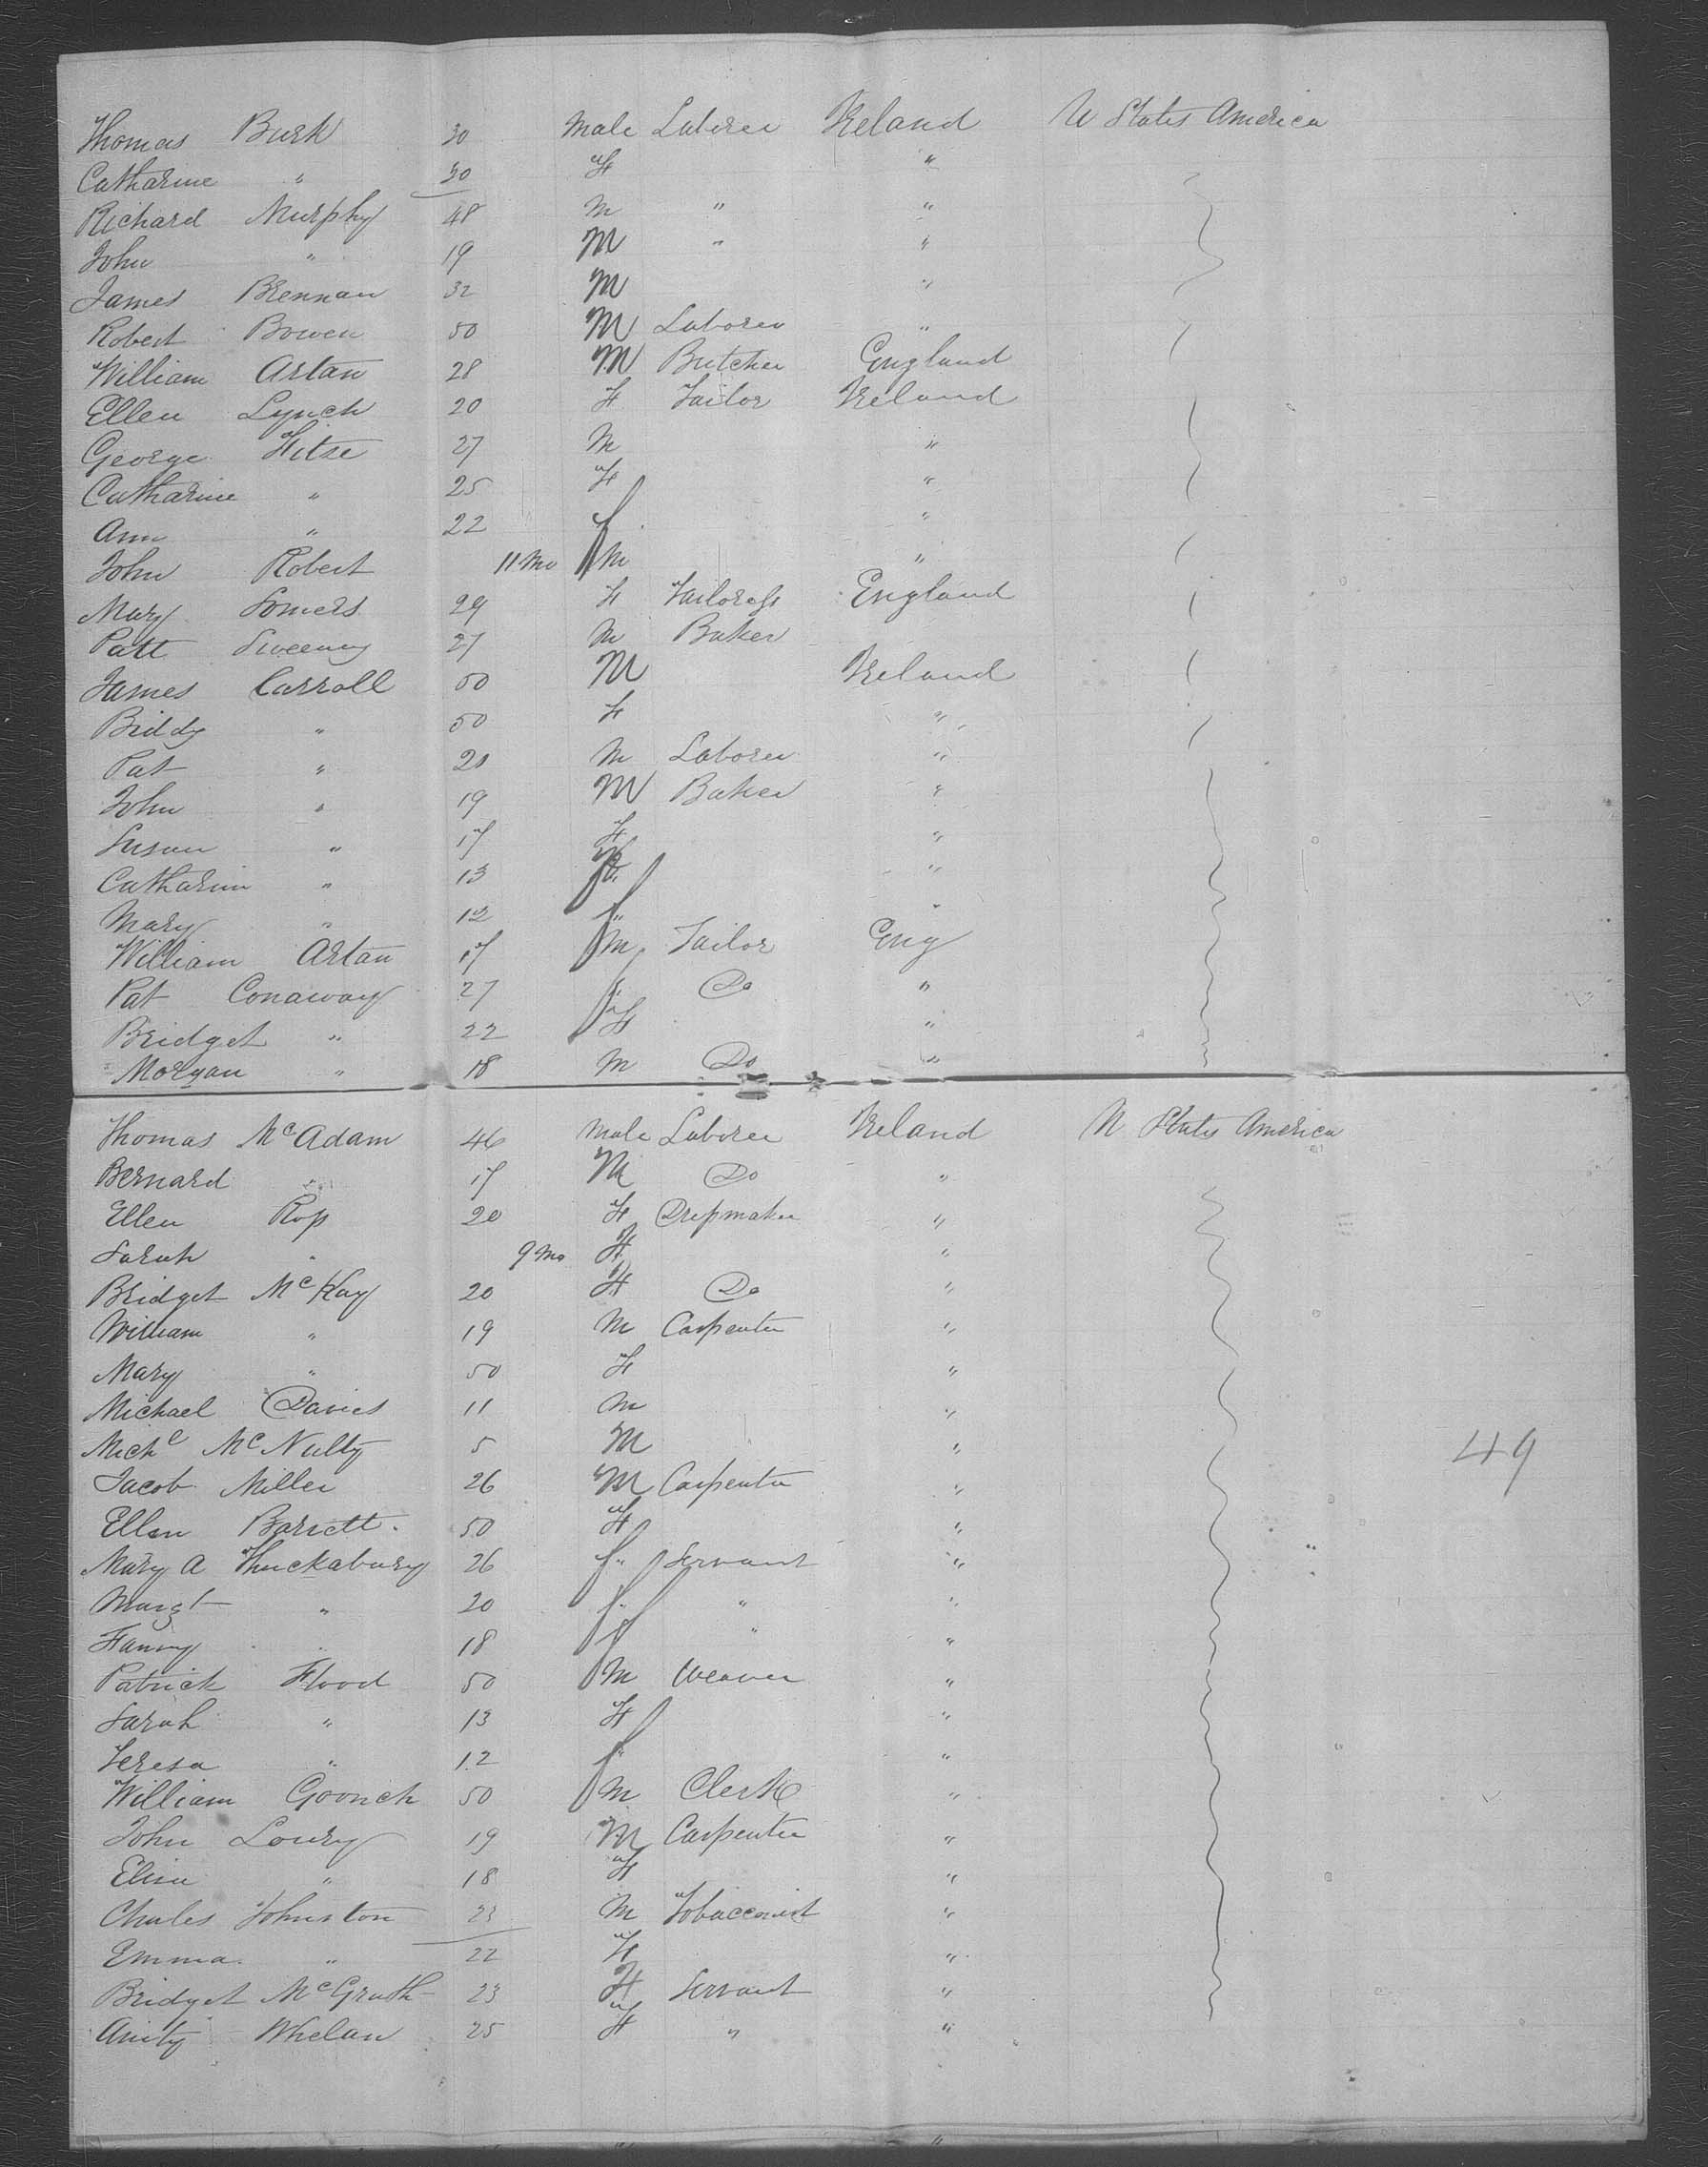 Thomas Burk 30 Male Laborer Ireland U States America
Catharine " 30 F "
Richard Murphy 48 M " "
John " 19 M " "
James Brennan 32 M "
Robert Bowen 50 M Laborer "
William Artan 28 M Butcher England
Ellen Lynch 20 F Tailor Ireland
George 27 M "
Catharine " 25 F "
Ann " 22 f "
John Robert 11 Mo M "
Mary Somers 29 F Tailoress England
Patt Sweeny 27 M Baker
James Carroll 50 M Ireland
Biddy " 50 F "
Pat " 20 M Laborer "
John " 19 M Baker "
Susan " 17 F "
Catharin " 13 "
Mary " 12 f "
William Artan 17 M Tailor Eng
Pat Conaway 27 " Do "
Bridget " 22 F "
Morgan " 18 M Do "
Thomas McAdam 46 Male Laborer Ireland U States America
Bernard " 17 M Do "
Ellen Ross 20 F Dressmaker "
Sarah " 9 Mo F "
Bridget McKay 20 F Do "
William " 19 M Carpenter "
Mary " 50 F "
Michael Davies 11 M "
Michl McNulty 5 M "
Jacob Miller 26 M Carpenter "
Ellen Barrett. 50 F "
Mary A Thuckabury 26 f Servant "
Margt " 20 f " "
Fanny " 18 f " "
Patrick Flood 50 M Weaver "
Sarah " 13 F "
Teresa " 12 f "
William Goonch 50 M Clerk "
John Lowry 19 M Carpenter "
Eliza " 18 F "
Charles Johnston 23 M Tobacconist "
Emma " 22 F "
Bridget McGrath 23 F Servant "
Anity Whelan 25 F " "
49